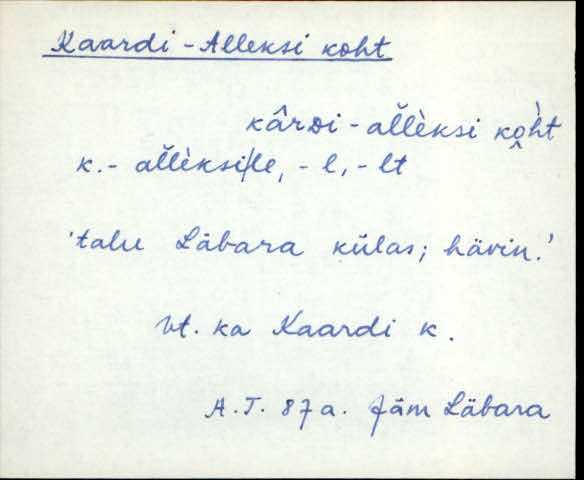 Kaardi-Alleksi koht
kârdi-al̆l̆èksi ko̭h̀t
k.-al̆l̆èksi/le, -l, -lt
'talu Läbara külas; hävin.'
Vt. ka Kaardi k.
A.T. 87a. Jäm Läbara